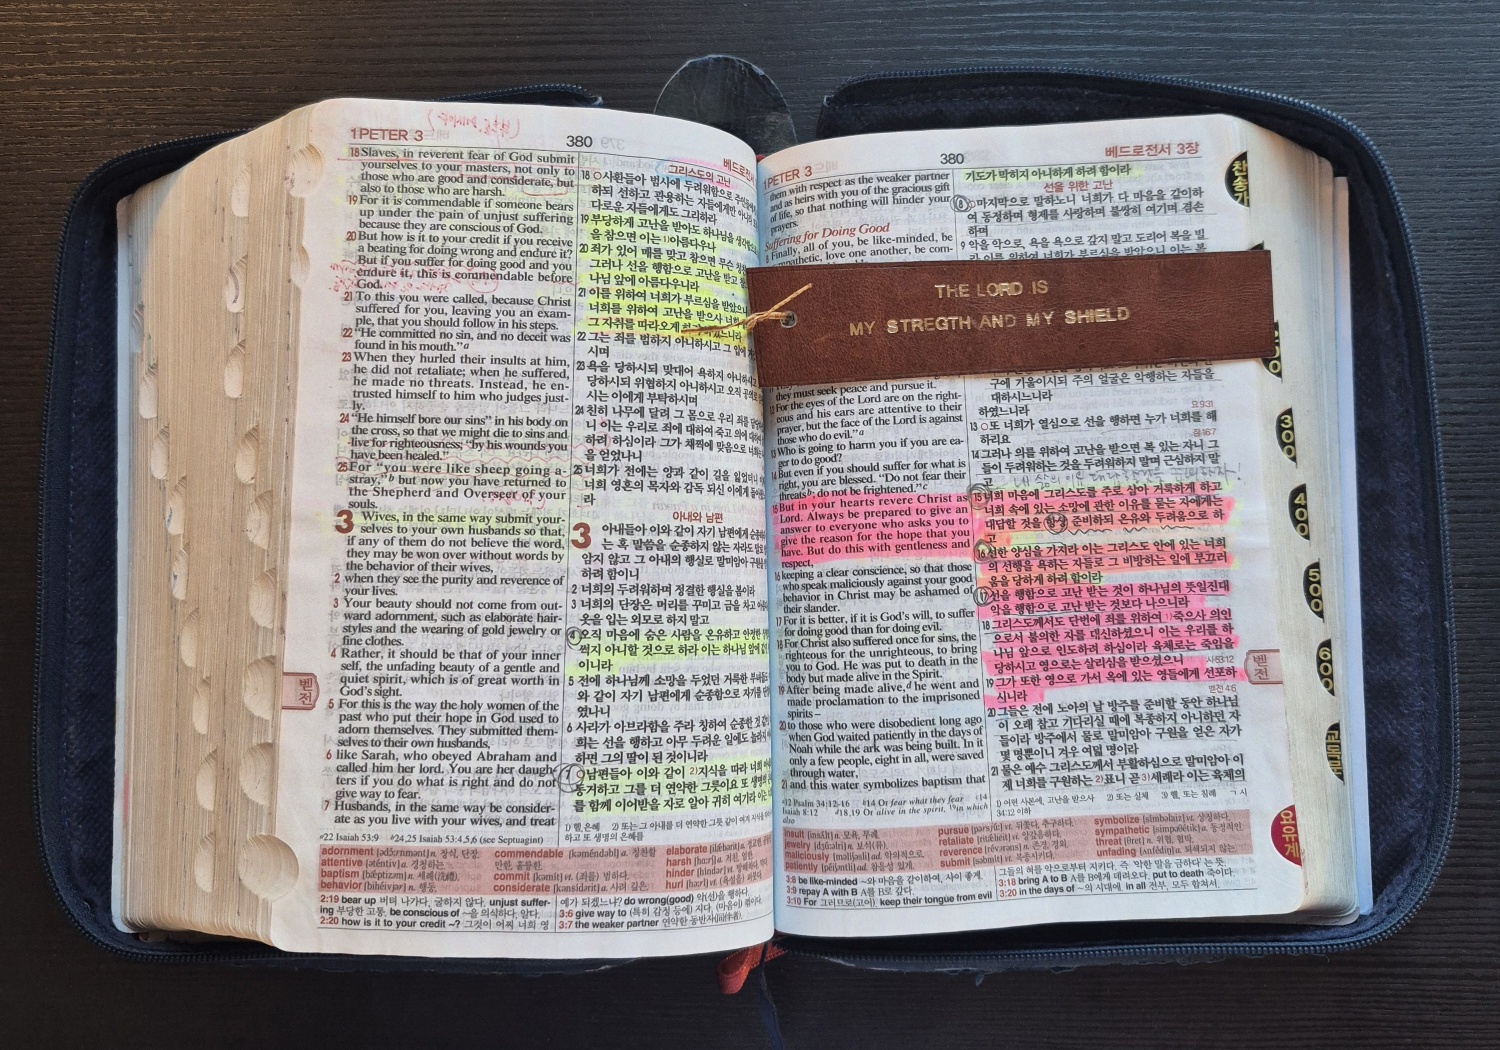 1 PETER 3
380
18 Slaves, in reverent fear of God submit
yourselves to your masters, not only to
those who are good and considerate, but
also to those who are harsh.
19 For it is commendable if someone bears
up under the pain of unjust suffering
because they are conscious of God.
20 But how is it to your credit if you receive
a beating for doing wrong and endure it?
But if you suffer for doing good and you
endure it, this is commendable before
God.
21 To this you were called, because Christ
suffered for you, leaving you an exam-
ple, that you should follow in his steps.
22 "He committed no sin, and no deceit was
found in his mouth."a
23 When they hurled their insults at him,
he did not retaliate; when he suffered,
he made no threats. Instead, he en-
trusted himself to him who judges just-
ly.
24 "He himself bore our sins" in his body on
the cross, so that we might die to sins and
live for righteousness; "by his wounds you
have been healed."
25 For "you were like sheep going a-
stray,"b but now you have returned to
the Shepherd and Overseer of your
souls.
3 Wives, in the same way submit your-
selves to your own husbands so that,
if any of them do not believe the word,
they may be won over without words by
the behavior of their wives,
2 when they see the purity and reverence of
your lives.
3 Your beauty should not come from out-
ward adornment, such as elaborate hair-
styles and the wearing of gold jewelry or
fine clothes.
4 Rather, it should be that of your inner
self, the unfading beauty of a gentle and
quiet spirit, which is of great worth in
God's sight.
5 For this is the way the holy women of the
past who put their hope in God used to
adorn themselves. They submitted them-
selves to their own husbands,
6 like Sarah, who obeyed Abraham and
called him her lord. You are her daugh-
ters if you do what is right and do not
give way to fear.
7 Husbands, in the same way be consider-
ate as you live with your wives, and treat
그리스도의 고난
18 ○사환들아 범사에 두려워함으로
하되 선하고 관용하는 자들에게만
다로운 자들에게도 그리하라
19 부당하게 고난을 받아도 하나님을
을 참으면 이는 1)아름다우나
20 죄가 있어 매를 맞고 참으면 무슨
그러나 선을 행함으로 고난을 받고
나님 앞에 아름다우니라
21 이를 위하여 너희가 부르심을
너희를 위하여 고난을 받으사
그 자취를 따라오게
22 그는 죄를 범하지 아니하시고 그 입에
시며
23 욕을 당하시되 맞대어 욕하지
당하시되 위협하지 아니하시고 오직
시는 이에게 부탁하시며
24 친히 나무에 달려 그 몸으로 우리 죄를
니 이는 우리로 죄에 대하여 죽고 의에
하려 하심이라 그가 채찍에 맞음으로
을 얻었나니
25 너희가 전에는 양과 같이 길을
너희 영혼의 목자와 감독 되신 이에게
라
아내와 남편
3 아내들아 이와 같이 자기 남편에게
는 혹 말씀을 순종하지 않는 자라도
암지 않고 그 아내의 행실로 말미암아
하려 함이니
2 너희의 두려워하며 정결한 행실을 봄이라
3 너희의 단장은 머리를 꾸미고 금을 차고
옷을 입는 외모로 하지 말고
4 오직 마음에 숨은 사람을 온유하고 안정한
썩지 아니할 것으로 하라 이는 하나님 앞에
이니라
5 전에 하나님께 소망을 두었던 거룩한
와 같이 자기 남편에게 순종함으로
였나니
6 사라가 아브라함을 주라 칭하여 순종한 것
희는 선을 행하고 아무 두려운 일에도
하면 그의 딸이 된 것이니라
7 ○남편들아 이와 같이 2)지식을 따라
동거하고 그를 더 연약한 그릇이요 또
를 함께 이어받을 자로 알아 귀히 여기라
벧전
a22 Isaiah 53:9 a24,25 Isaiah 53:4,5,6 (see Septuagint)
adornment n. 장식, 단장.
attentive a. 경청하는
baptism n. 세례
behavior n. 행동.
commendable a. 칭찬할
만한, 훌륭한.
commit vt. (죄를) 범하다.
considerate a. 사려 깊은.
elaborate
harsh
hinder
hurl
2:19 bear up 버텨 나가다, 굴하지 않다. unjust suffer-
ing 부당한 고통. be conscious of ~을 의식하다, 알다.
2:20 how is it to your credit ~? 그것이 어찌 너희 영
예가 되겠느냐? do wrong(good) 악(선)을 행하다.
3:6 give way to
3:7 the weaker partner 연약한 동반자
1 PETER 3
380
베드로전서 3장
them with respect as the weaker partner
and as heirs with you of the gracious gift
of life, so that nothing will hinder your
prayers.
Suffering for Doing Good
8 Finally, all of you, be like-minded, be
sympathetic, love one another, be com-
THE LORD IS
MY STREGTH AND MY SHIELD
they must seek peace and pursue it.
12 For the eyes of the Lord are on the right-
eous and his ears are attentive to their
prayer, but the face of the Lord is against
those who do evil."a
13 Who is going to harm you if you are ea-
ger to do good?
14 But even if you should suffer for what is
right, you are blessed. "Do not fear their
threatsb; do not be frightened."c
15 But in your hearts revere Christ as
Lord. Always be prepared to give an
answer to everyone who asks you to
give the reason for the hope that you
have. But do this with gentleness and
respect,
16 keeping a clear conscience, so that those
who speak maliciously against your good
behavior in Christ may be ashamed of
their slander.
17 For it is better, if it is God's will, to suffer
for doing good than for doing evil.
18 For Christ also suffered once for sins, the
righteous for the unrighteous, to bring
you to God. He was put to death in the
body but made alive in the Spirit.
19 After being made alive,d he went and
made proclamation to the imprisoned
spirits –
20 to those who were disobedient long ago
when God waited patiently in the days of
Noah while the ark was being built. In it
only a few people, eight in all, were saved
through water,
21 and this water symbolizes baptism that
기도가 막히지 아니하게 하려 함이라
선을 위한 고난
8 ○마지막으로 말하노니 너희가 다 마음을 같이하
여 동정하며 형제를 사랑하며 불쌍히 여기며 겸손
하며
9 악을 악으로, 욕을 욕으로 갚지 말고 도리어 복을 빌
라 이를 위하여 너희가 부르심을 받았으니 이는 복
구에 기울이시되 주의 얼굴은 악행하는 자들을
대하시느니라
하였느니라
13 ○또 너희가 열심으로 선을 행하면 누가 너희를 해
하리요
14 그러나 의를 위하여 고난을 받으면 복 있는 자니 그
들이 두려워하는 것을 두려워하지 말며 근심하지 말
고
15 너희 마음에 그리스도를 주로 삼아 거룩하게 하고
너희 속에 있는 소망에 관한 이유를 묻는 자에게는
대답할 것을 항상 준비하되 온유와 두려움으로 하
고
16 선한 양심을 가지라 이는 그리스도 안에 있는 너희
의 선행을 욕하는 자들로 그 비방하는 일에 부끄러
움을 당하게 하려 함이라
17 선을 행함으로 고난 받는 것이 하나님의 뜻일진대
악을 행함으로 고난 받는 것보다 나으니라
18 그리스도께서도 단번에 죄를 위하여 1)죽으사 의인
으로서 불의한 자를 대신하셨으니 이는 우리를 하
나님 앞으로 인도하려 하심이라 육체로는 죽임을
당하시고 영으로는 살리심을 받으셨으니
19 그가 또한 영으로 가서 옥에 있는 영들에게 선포하
시니라
20 그들은 전에 노아의 날 방주를 준비할 동안 하나님
이 오래 참고 기다리실 때에 복종하지 아니하던 자
들이라 방주에서 물로 말미암아 구원을 얻은 자가
몇 명뿐이니 겨우 여덟 명이라
21 물은 예수 그리스도께서 부활하심으로 말미암아 이
제 너희를 구원하는 2)표니 곧 3)세례라 이는 육체의
벧전
a12 Psalm 34:12-16 b14 Or fear what they fear
Isaiah 8:12
insult
jewelry
maliciously
patiently
pursue vt. 뒤쫓다, 추구하다.
retaliate
reverence n. 존경, 경외.
submit n. 복종시키다.
symbolize vt. 상징하다.
sympathetic a. 동정적인.
threat n. 위협, 협박.
unfading
3:8 be like-minded ~와 마음을 같이하여, 사이 좋게.
3:9 repay A with B A를 B로 갚다.
3:10 For 그러므로(고어). keep their tongue from evil
그들의 혀를 악으로부터 지키다, 즉, '악한 말을 금하다'는 뜻.
3:18 bring A to B A를 B에게 데려오다. put to death 죽이다.
3:20 in the days of ~의 시대에. in all 전부, 모두 합쳐서.
찬송가
300
400
500
600
교독문
요유계